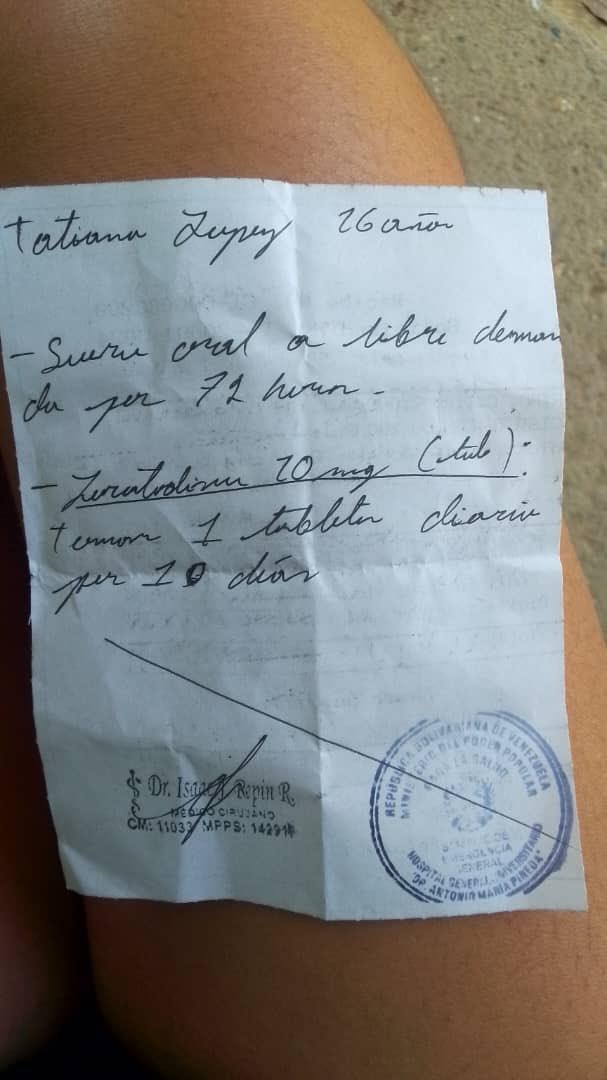 Tatiana Lopez 26 años
- Suero oral a libre deman
da por 72 horas.
- Loratadina 10 mg (tab):
tomar 1 tableta diaria
por 10 días
Dr. Isaac Repin R.
MÉDICO CIRUJANO
CM: 11033 MPPS:
REPÚBLICA BOLIVARIANA DE VENEZUELA
MINISTERIO DEL PODER POPULAR
PARA LA SALUD
SERVICIO DE
EMERGENCIA
GENERAL
HOSPITAL GENERAL UNIVERSITARIO
"DR. ANTONIO MARIA PINEDA"